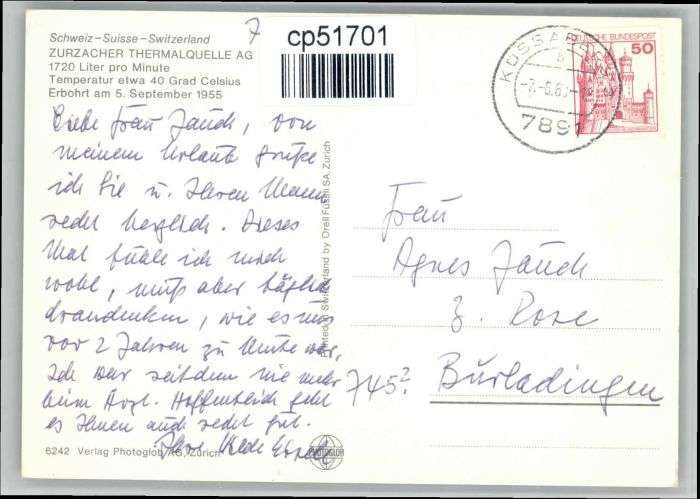 7
cp51701
Schweiz–Suisse–Switzerland
ZURZACHER THERMALQUELLE AG
1720 Liter pro Minute
Temperatur etwa 40 Grad Celsius
Erbohrt am 5. September 1955
Liebe Frau Jauch, von
meinem Urlaub grüße
ich Sie u. Ihren Mann
recht herzlich. Dieses
Mal fühle ich mich
wohl, muß aber täglich
drandenken, wie es mir
vor 2 Jahren zu Mute war.
Ich war seitdem nie mehr
beim Arzt. Hoffentlich geht
es Ihnen auch recht gut.
Ihre
6242 Verlag Photoglob AG, Zürich
PHOTOGLOB
Printed in Switzerland by Orell Füssli SA, Zürich
DEUTSCHE BUNDESPOST
50
7891
Frau
Agnes Jauch
z. Rose
745?
Burladingen